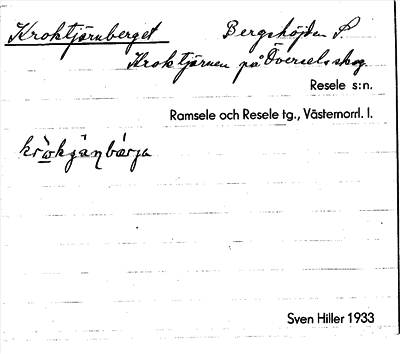 Kroktjärnberget Bergshöjden S
Kroktjärnen på Överselsskog.
Resele s:n.
Ramsele och Resele tg., Västernorrl. l.
Sven Hiller 1933